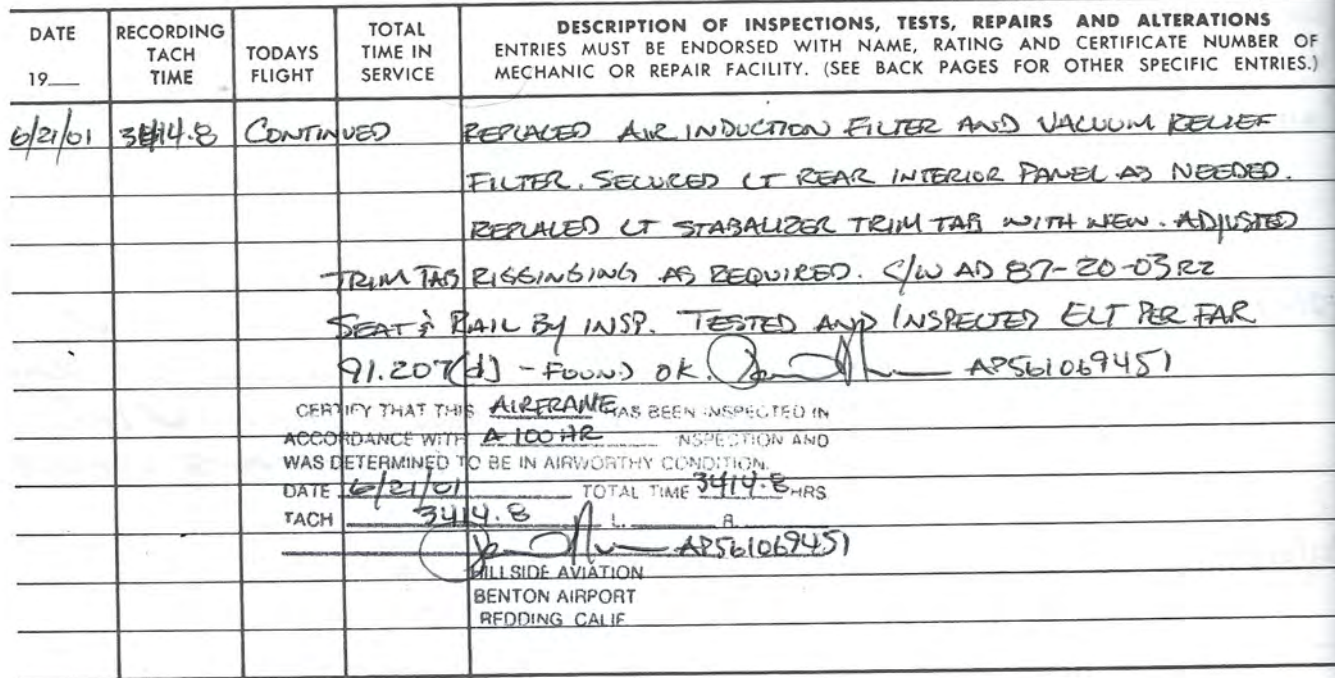 DATE RECORDING TACH TIME TODAYS FLIGHT TOTAL TIME IN SERVICE DESCRIPTION OF INSPECTIONS, TESTS, REPAIRS AND ALTERATIONS
19__ ENTRIES MUST BE ENDORSED WITH NAME, RATING AND CERTIFICATE NUMBER OF
MECHANIC OR REPAIR FACILITY. (SEE BACK PAGES FOR OTHER SPECIFIC ENTRIES.)
6/21/01 3414.8 CONTINUED REPLACED AIR INDUCTION FILTER AND VACUUM RELIEF
FILTER. SECURED LT REAR INTERIOR PANEL AS NEEDED.
REPLACED LT STABALIZER TRIM TAB WITH NEW. ADJUSTED
TRIM TAB RIGGINGING AS REQUIRED. C/W AD 87-20-03R2
SEAT & RAIL BY INSP. TESTED AND INSPECTED ELT PER FAR
91.207(d) - FOUND OK. AP561069451
CERTIFY THAT THIS AIRFRAME HAS BEEN INSPECTED IN
ACCORDANCE WITH A 100 HR INSPECTION AND
WAS DETERMINED TO BE IN AIRWORTHY CONDITION.
DATE 6/21/01 TOTAL TIME 3414.8 HRS
TACH 3414.8 L. R.
AP561069451
HILLSIDE AVIATION
BENTON AIRPORT
REDDING CALIF